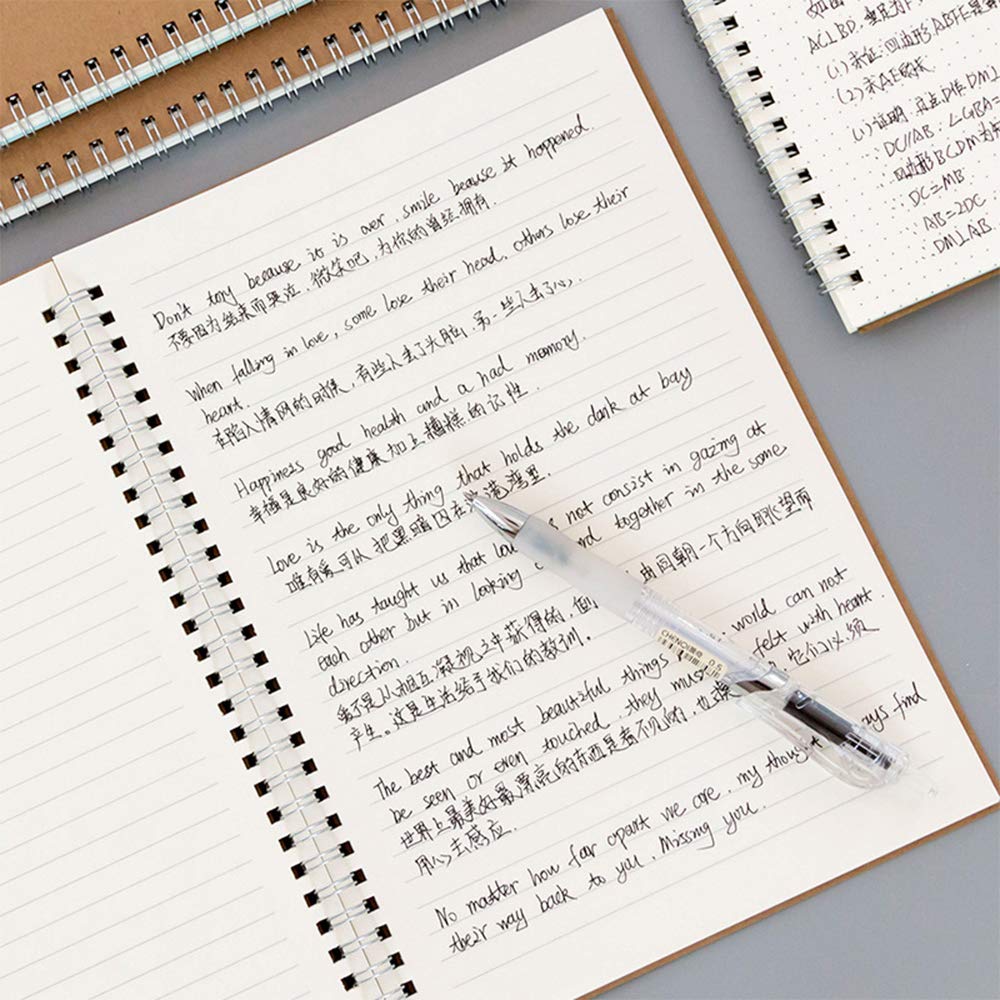 Don't tory because it is over, smile beause it happened.
不要因为结束而哭泣,微笑吧,为你的曾经拥有.
When falling in love, some lose their head, others lose their
heart.
在陷入情网的时候,有些人丢了头脑,另一些人丢了心.
Happiness good health and a had memory.
幸福是良好的健康加上糟糕的记性.
Love is the only thing that holds the dank at bay
唯有爱可以把黑暗囚在港湾里.
Life has taught us that lo not consist in gazing at
each other but in looking together in the some
direction.
爱不是从相互凝视之中获得的, 由同朝一个方向眺望而
产生。这是生活给予我们的教训。
The best and most beautiful things world can not
be seen or even touched, they must felt with heart.
世界上最美好最漂亮的东西是看不见的, 它们必须
用心去感应.
No matter how far apart we are, my thought ays find
their way back to you, Missing you.
CHENQI 0.5
AC⊥BD,
(1)求证:四边形ABFE是
(2)求AE的长
(1)证明:过点D作DM⊥
DC//AB, ∠GBA=
四边形BCDM为
DC=MB
AB=2DC
DM⊥AB.